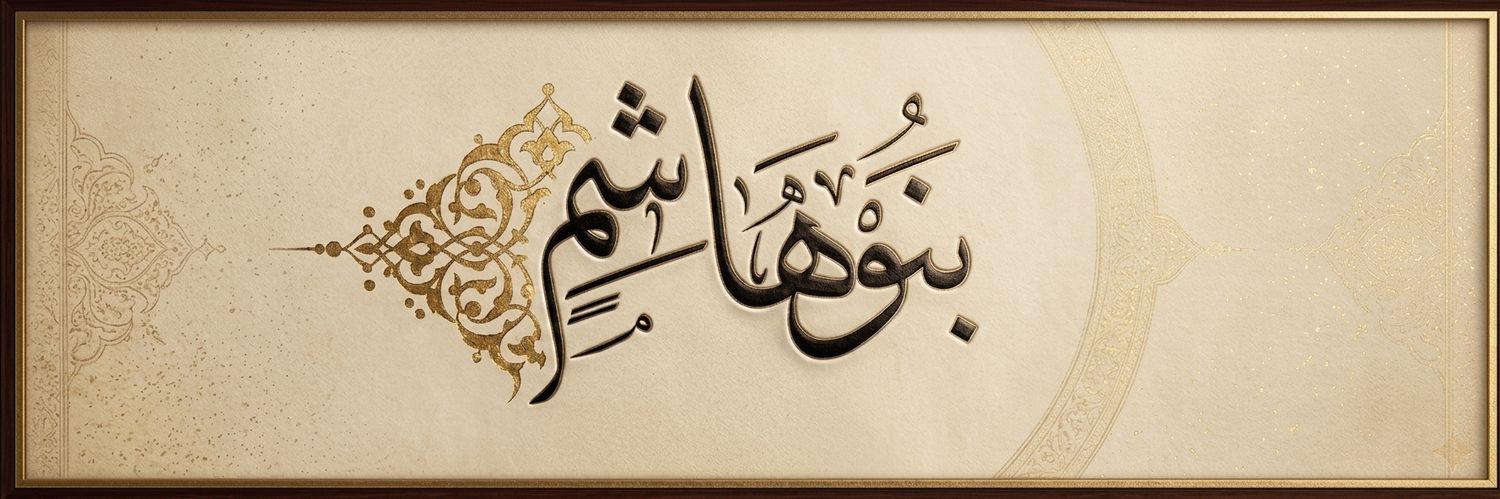 بَنُوْ هَاشِمٍ